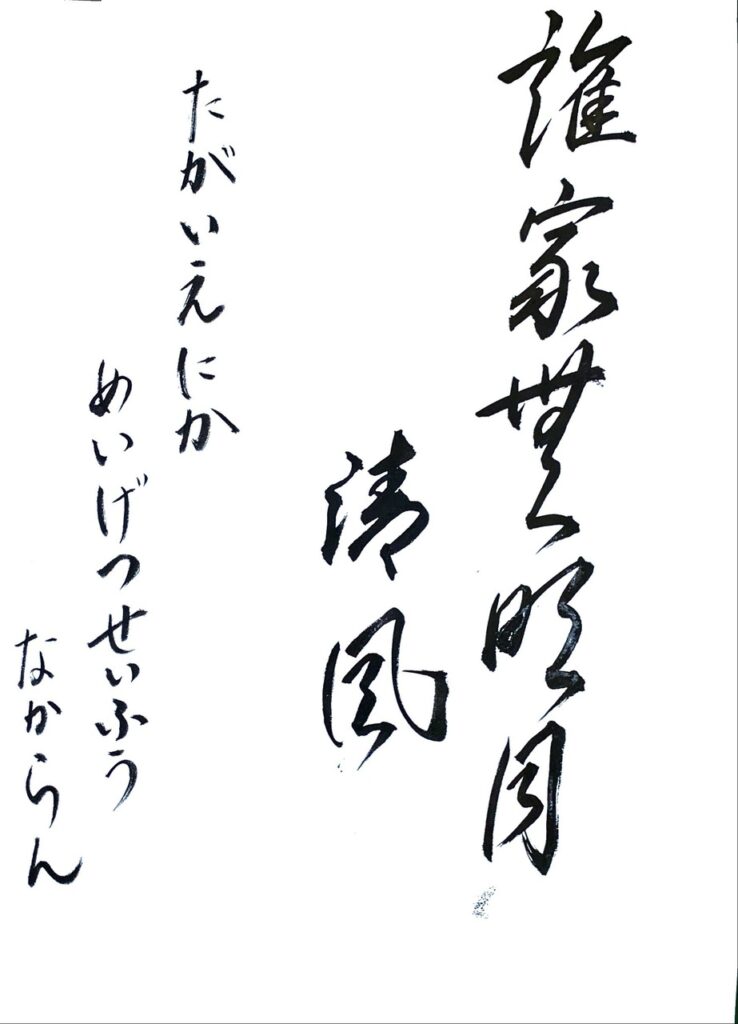 誰家無明月
清風
たがいえにか
めいげつせいふう
なからん